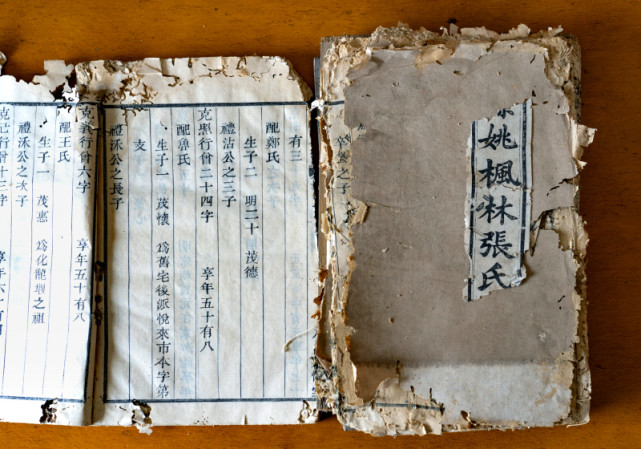 姚楓林張氏
有三
配鄭氏
生子二 明二十 茂德
禮沽公之三子
克照行曾二十四字 享年五十有八
生子一 茂懷 爲舊宅後派悅來市本字第
支
禮沃公之長子
克義行曾六字 享年五十有八
配王氏
生子一 茂惠 爲化龍壩之祖
禮沃公之次子
克己行曾十三字 享年六十有四